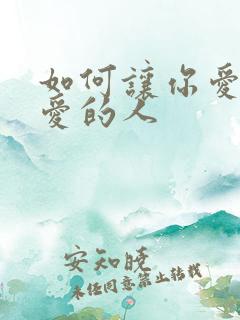 如何讓你愛
愛的人
安知曉
未經同意禁止轉載